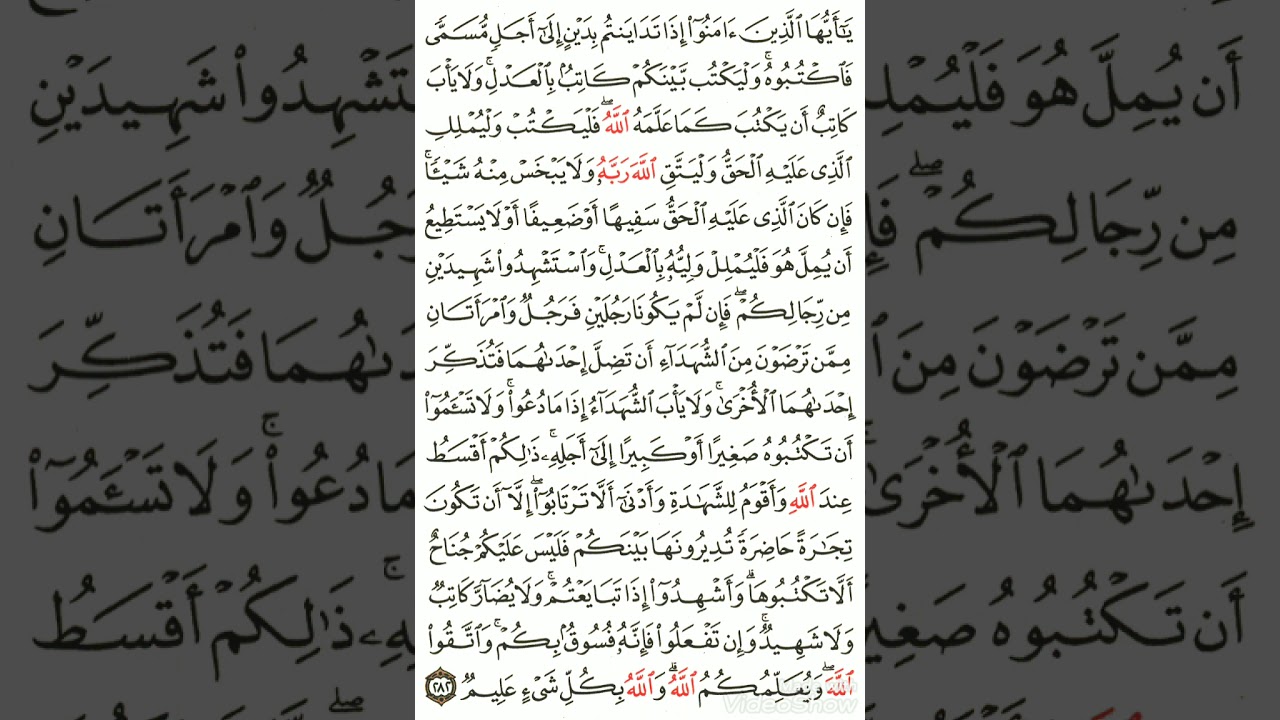 يَٰٓأَيُّهَا ٱلَّذِينَ ءَامَنُوٓا۟ إِذَا تَدَايَنتُم بِدَيْنٍ إِلَىٰٓ أَجَلٍ مُّسَمًّى
فَٱكْتُبُوهُ ۚ وَلْيَكْتُب بَّيْنَكُمْ كَاتِبٌۢ بِٱلْعَدْلِ ۚ وَلَا يَأْبَ
كَاتِبٌ أَن يَكْتُبَ كَمَا عَلَّمَهُ ٱللَّهُ ۚ فَلْيَكْتُبْ وَلْيُمْلِلِ
ٱلَّذِى عَلَيْهِ ٱلْحَقُّ وَلْيَتَّقِ ٱللَّهَ رَبَّهُۥ وَلَا يَبْخَسْ مِنْهُ شَيْـًٔا ۚ
فَإِن كَانَ ٱلَّذِى عَلَيْهِ ٱلْحَقُّ سَفِيهًا أَوْ ضَعِيفًا أَوْ لَا يَسْتَطِيعُ
أَن يُمِلَّ هُوَ فَلْيُمْلِلْ وَلِيُّهُۥ بِٱلْعَدْلِ ۚ وَٱسْتَشْهِدُوا۟ شَهِيدَيْنِ
مِن رِّجَالِكُمْ ۖ فَإِن لَّمْ يَكُونَا رَجُلَيْنِ فَرَجُلٌ وَٱمْرَأَتَانِ
مِمَّن تَرْضَوْنَ مِنَ ٱلشُّهَدَآءِ أَن تَضِلَّ إِحْدَىٰهُمَا فَتُذَكِّرَ
إِحْدَىٰهُمَا ٱلْأُخْرَىٰ ۚ وَلَا يَأْبَ ٱلشُّهَدَآءُ إِذَا مَا دُعُوا۟ ۚ وَلَا تَسْـَٔمُوٓا۟
أَن تَكْتُبُوهُ صَغِيرًا أَوْ كَبِيرًا إِلَىٰٓ أَجَلِهِۦ ۚ ذَٰلِكُمْ أَقْسَطُ
عِندَ ٱللَّهِ وَأَقْوَمُ لِلشَّهَٰدَةِ وَأَدْنَىٰٓ أَلَّا تَرْتَابُوٓا۟ ۖ إِلَّآ أَن تَكُونَ
تِجَٰرَةً حَاضِرَةً تُدِيرُونَهَا بَيْنَكُمْ فَلَيْسَ عَلَيْكُمْ جُنَاحٌ
أَلَّا تَكْتُبُوهَا ۗ وَأَشْهِدُوٓا۟ إِذَا تَبَايَعْتُمْ ۚ وَلَا يُضَآرَّ كَاتِبٌ
وَلَا شَهِيدٌ ۚ وَإِن تَفْعَلُوا۟ فَإِنَّهُۥ فُسُوقٌۢ بِكُمْ ۗ وَٱتَّقُوا۟
ٱللَّهَ ۖ وَيُعَلِّمُكُمُ ٱللَّهُ ۗ وَٱللَّهُ بِكُلِّ شَىْءٍ عَلِيمٌ ٢٨٢
VideoShow